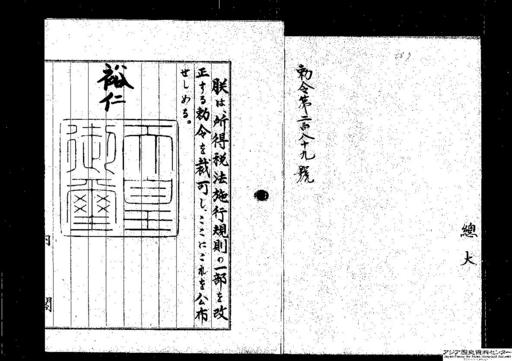 勅令第二百八十九號
總大
朕は、所得税法施行規則の一部を改
正する勅令を裁可し、ここにこれを公布
せしめる。
裕仁
天皇
御璽
内閣
アジア歴史資料センター